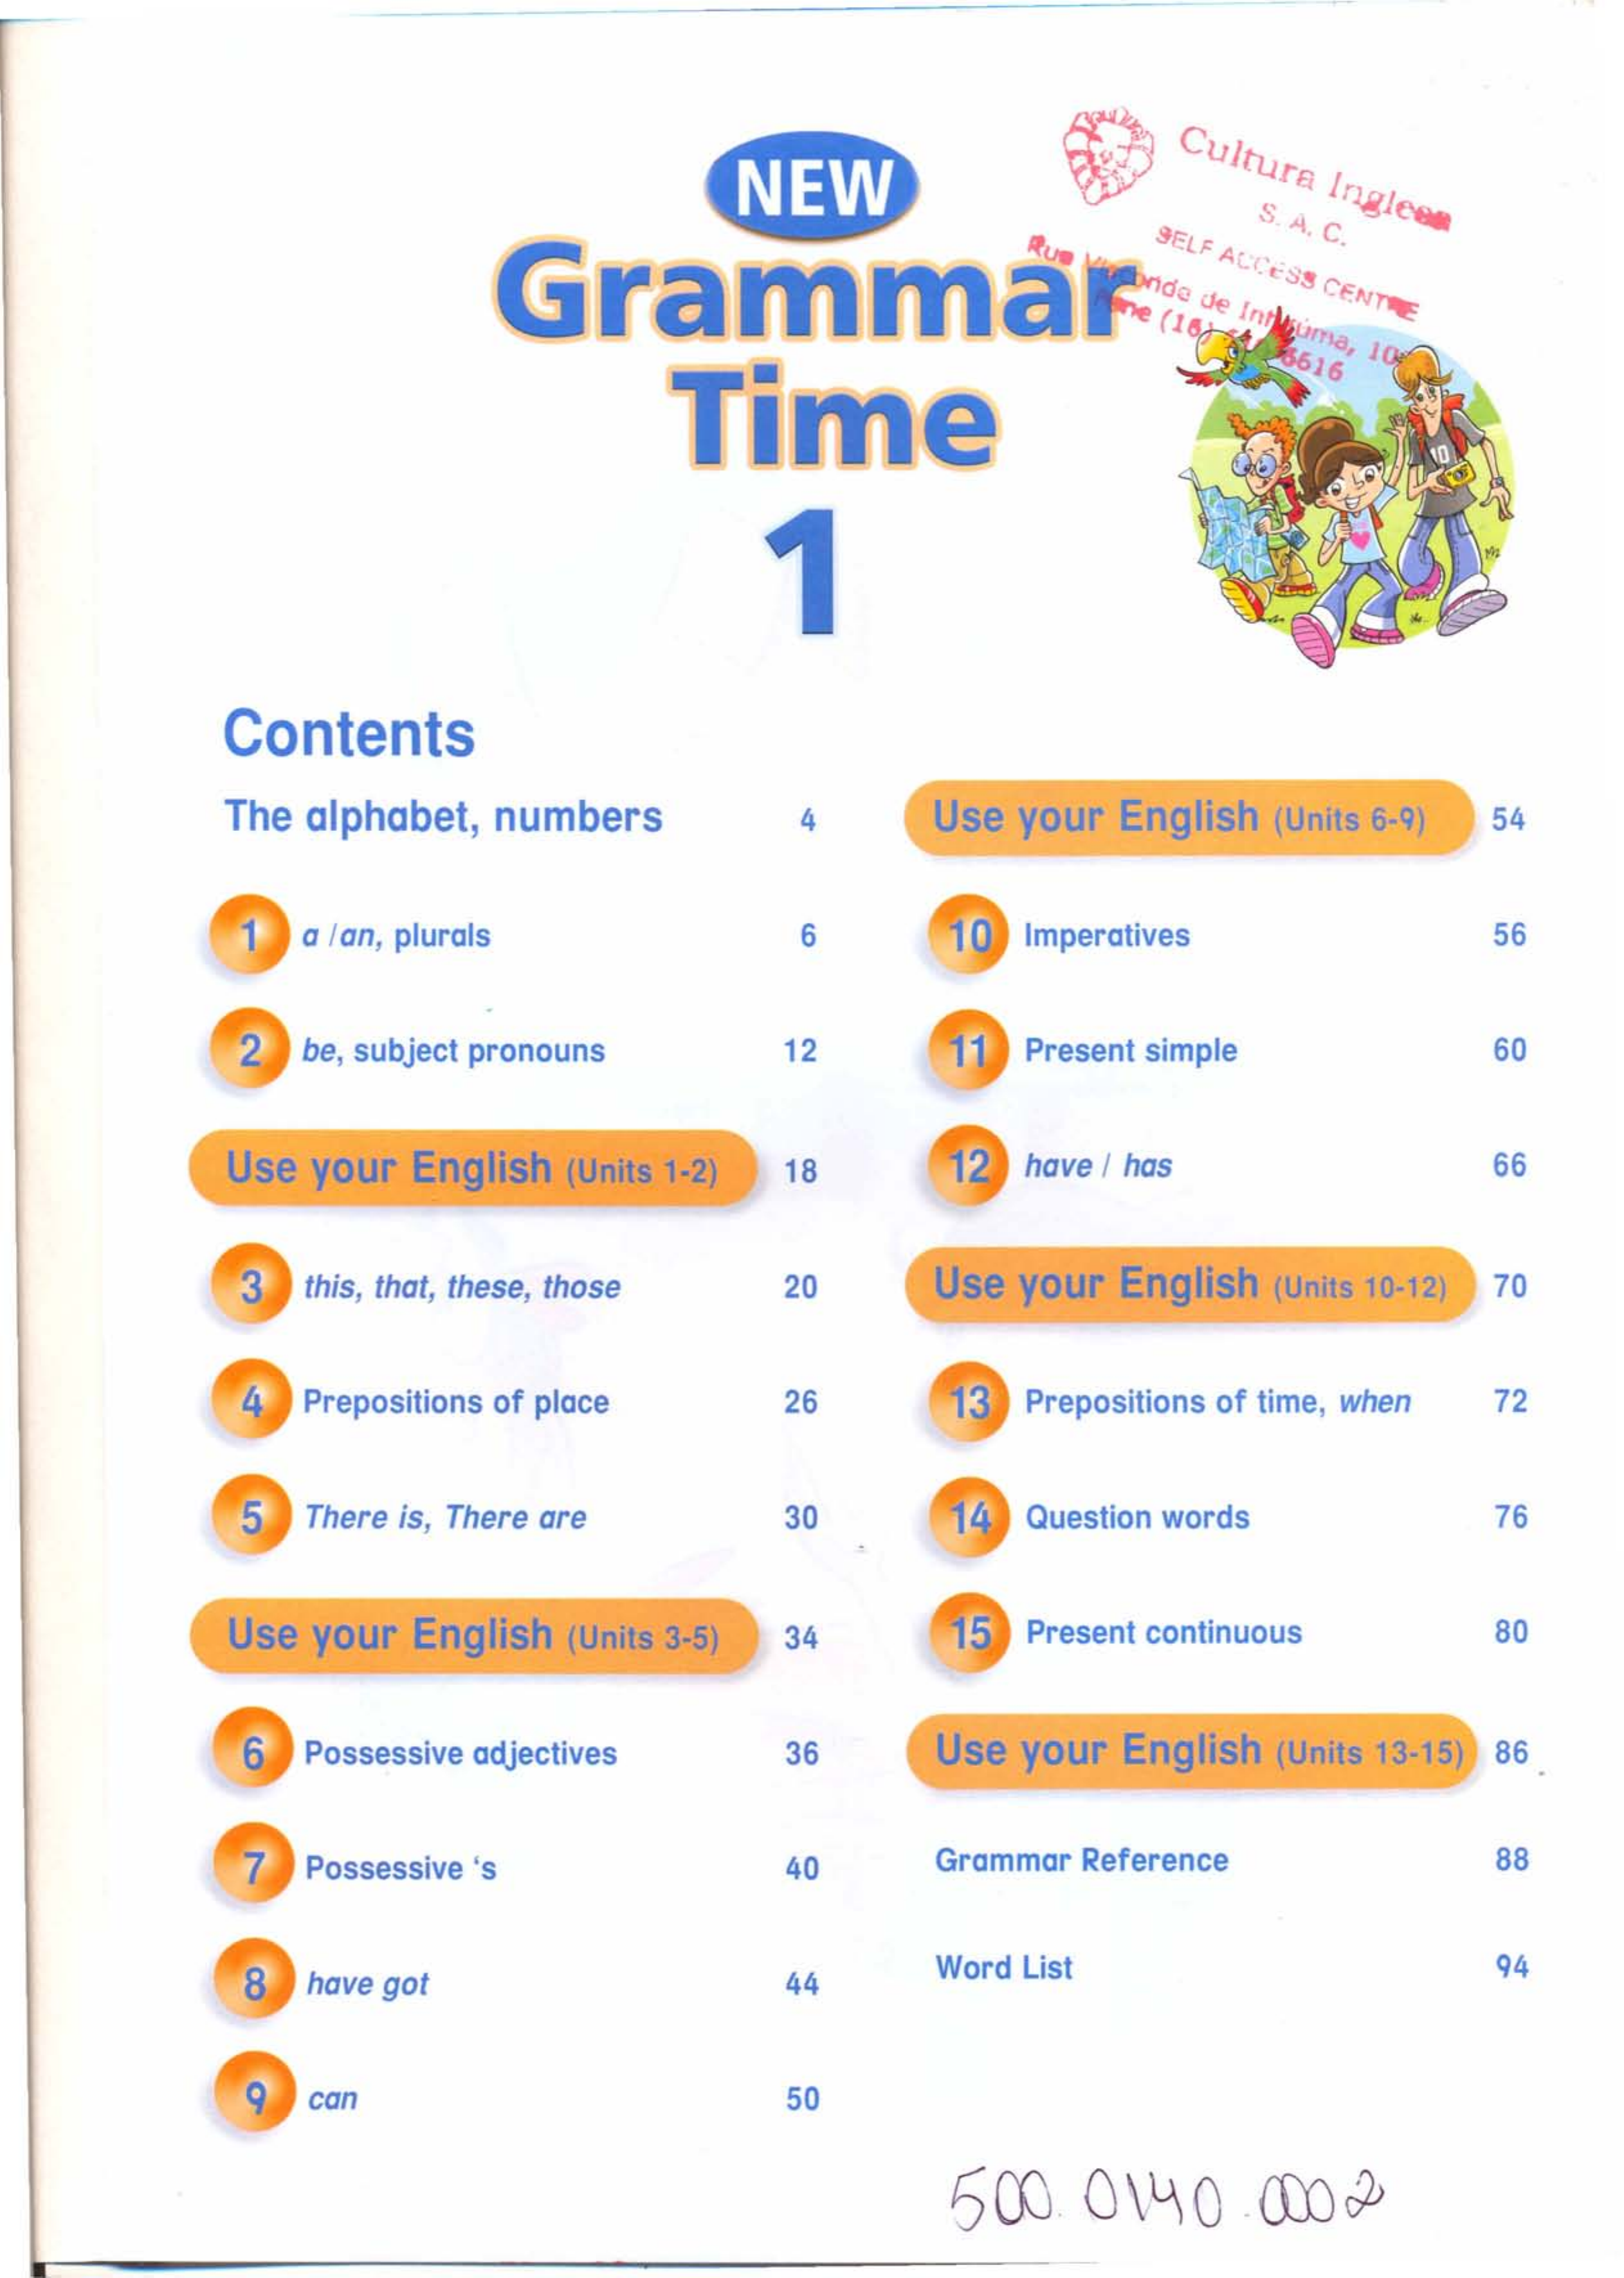 NEW
Grammar
Time
1
Cultura Inglesa
S. A. C.
SELF ACCESS CENTRE
Rua Visconde de Inhaúma, 10
Fone (16) 6616
10
Contents
The alphabet, numbers 4
1 a / an, plurals 6
2 be, subject pronouns 12
Use your English (Units 1-2) 18
3 this, that, these, those 20
4 Prepositions of place 26
5 There is, There are 30
Use your English (Units 3-5) 34
6 Possessive adjectives 36
7 Possessive ‘s 40
8 have got 44
9 can 50
Use your English (Units 6-9) 54
10 Imperatives 56
11 Present simple 60
12 have / has 66
Use your English (Units 10-12) 70
13 Prepositions of time, when 72
14 Question words 76
15 Present continuous 80
Use your English (Units 13-15) 86
Grammar Reference 88
Word List 94
500.0140.0002